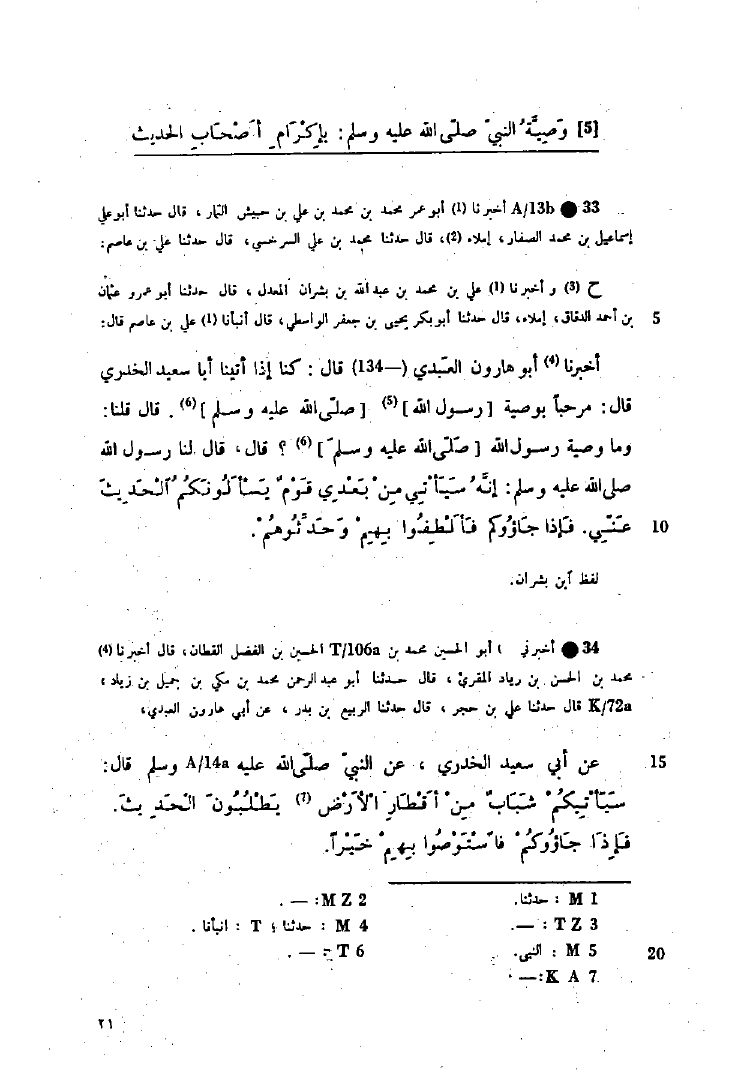 [5] وَصِيَّةُ النبيّ صلّى الله عليه وسلم: بإكْرَامِ أَصْحَابِ الحديث
33 ● A/13b أخبرنا (1) أبو عمر محمد بن محمد بن علي بن حبيش التمار، قال حدثنا أبو علي
إسماعيل بن محمد الصفار، إملاء (2)، قال حدثنا محمد بن علي السرخسي، قال حدثنا علي بن عاصم:
ح (3) وأخبرنا (1) علي بن محمد بن عبدالله بن بشران المعدل، قال حدثنا أبو عمرو عثمان
5 بن أحمد الدقاق، إملاء، قال حدثنا أبو بكر يحيى بن جعفر الواسطي، قال أنبأنا (1) علي بن عاصم قال:
أخبرنا (4) أبو هارون العَبْدي (—134) قال: كنا إذا أتينا أبا سعيد الخدري
قال: مرحباً بوصية [رسول الله] (5) [صلّى الله عليه وسلم] (6). قال قلنا:
وما وصية رسول الله [صَلّى الله عليه وسلم] (6) ؟ قال، قال لنا رسول الله
صلى الله عليه وسلم: إنَّهُ سَيَأْتي مِنْ بَعْدِي قَوْمٌ يَسْأَلُونَكُمُ الْحَدِيثَ
10 عَنِّي. فَإذا جَاؤُوكم فَأَلْطِفُوا بِهِمْ وَحَدِّثُوهُمْ.
لفظ ابن بشران.
34 ● أخبرني أبو الحسين محمد بن T/106a الحسين بن الفضل القطان، قال أخبرنا (4)
محمد بن الحسن بن زياد المقريء، قال حدثنا أبو عبد الرحمن محمد بن مكي بن جميل بن زياد،
K/72a قال حدثنا علي بن حجر، قال حدثنا الربيع بن بدر، عن أبي هارون العبدي،
15 عن أبي سعيد الخدري، عن النبيّ صلّى الله عليه A/14a وسلم قال:
سَيَأْتِيكُمْ شَبَابٌ مِنْ أَقْطَارِ الْأَرْضِ (7) يَطْلُبُونَ الْحَدِيثَ.
فَإِذَا جَاؤُوكُمْ فَاسْتَوْصُوا بِهِمْ خَيْراً.
1 M : حدثنا. 2 M Z: —.
3 T Z : —. 4 M : حدثنا؛ T : انبأنا.
20 5 M : النبى. 6 T : —.
7 K A: —.
٢١